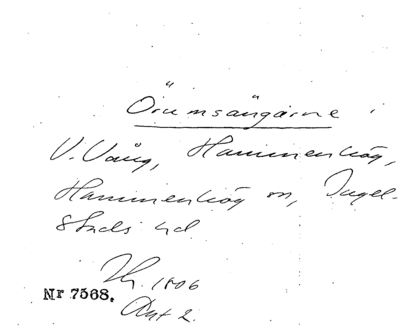 Örumsängarne
V. Vång, Hammenhög,
Hammenhög sn, Ingel-
stads hd
1806
Nr 7568. Akt 2.